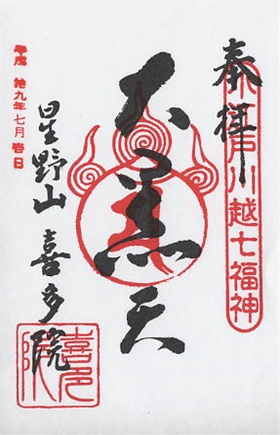 奉拝
小江戸川越七福神
大黒天
星野山 喜多院
平成 拾九年七月壱日
喜多院